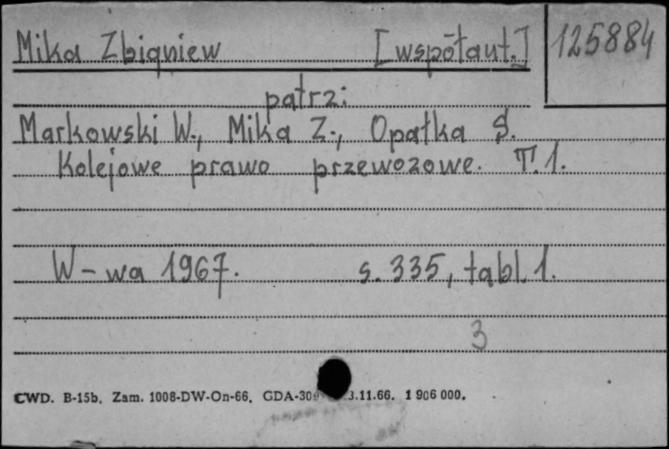 Mika Zbigniew [współaut.] 125884
patrz:
Markowski W., Mika Z., Opałka S.
Kolejowe prawo przewozowe. T. 1.
W-wa 1967. s. 335, tabl. 1.
3
CWD. B-15b. Zam. 1008-DW-On-66. .11.66. 1 906 000.